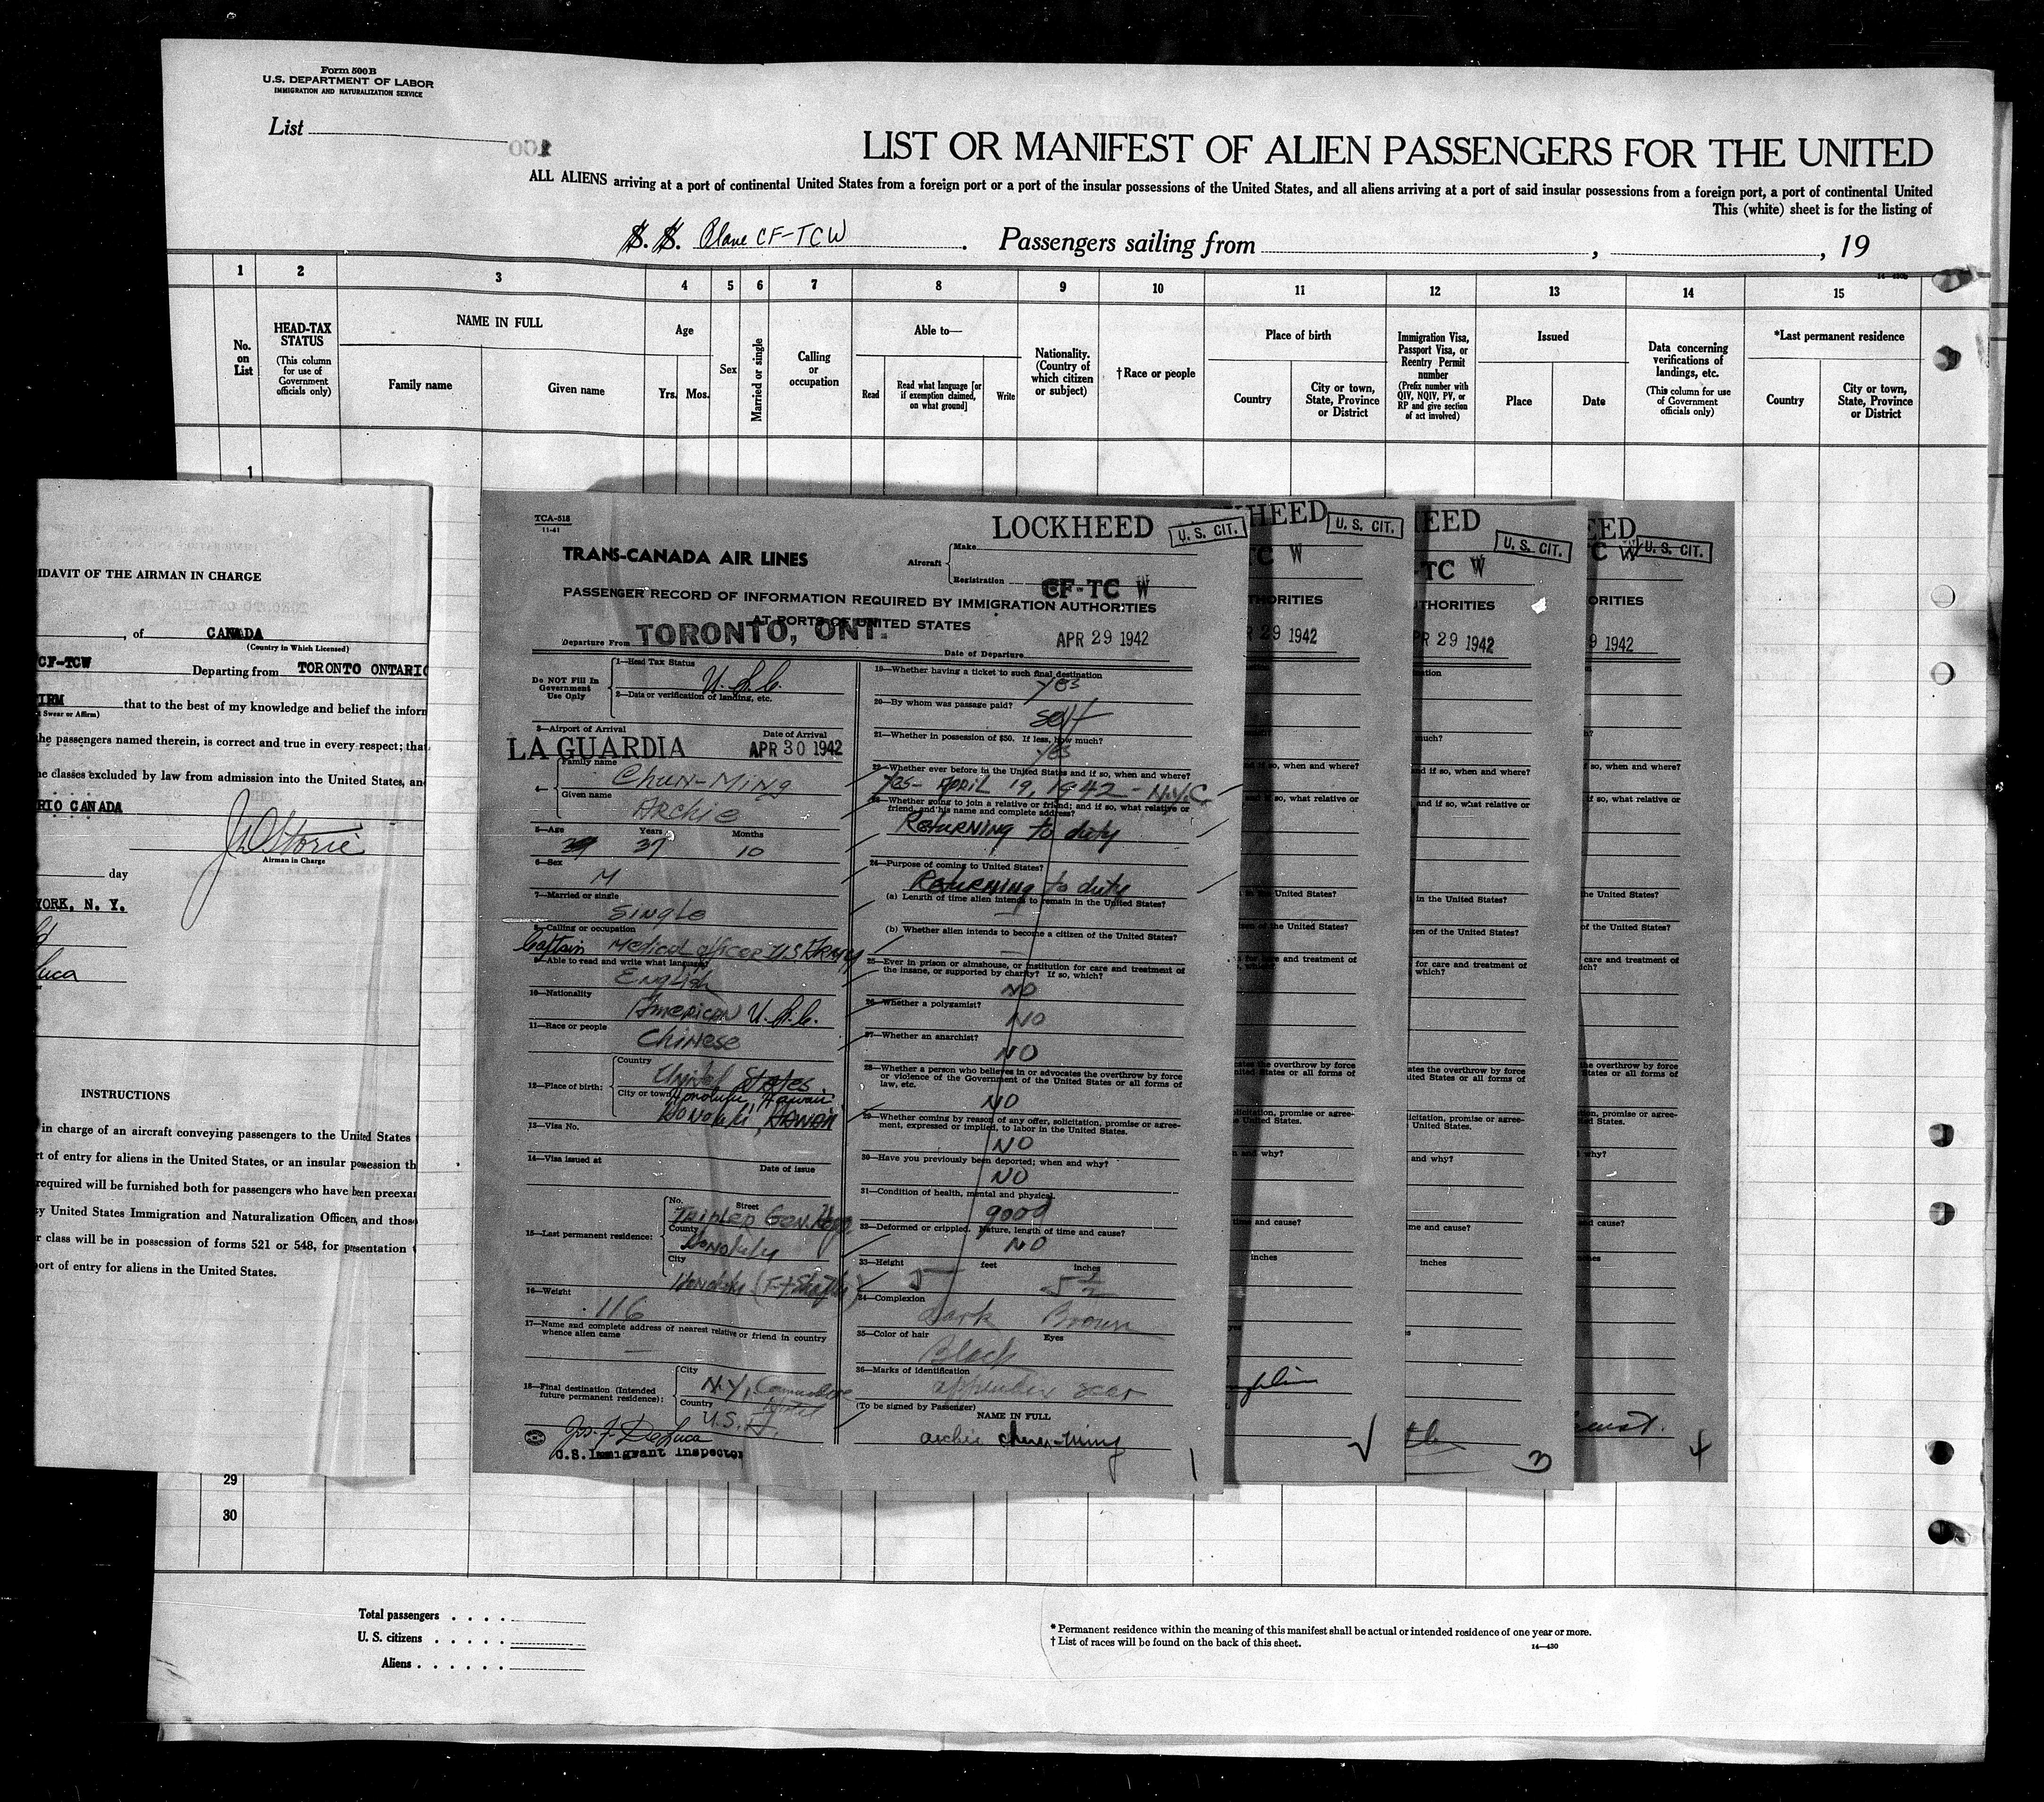 Form 500B
U.S. DEPARTMENT OF LABOR
IMMIGRATION AND NATURALIZATION SERVICE
List
LIST OR MANIFEST OF ALIEN PASSENGERS FOR THE UNITED
ALL ALIENS arriving at a port of continental United States from a foreign port or a port of the insular possessions of the United States, and all aliens arriving at a port of said insular possessions from a foreign port, a port of continental United
This (white) sheet is for the listing of
S. S. Plane CF-TCW . Passengers sailing from , , 19
1 2 3 4 5 6 7 8 9 10 11 12 13 14 15
No. on List
HEAD-TAX STATUS
(This column for use of Government officials only)
NAME IN FULL
Family name
Given name
Age
Yrs. Mos.
Sex
Married or single
Calling or occupation
Able to—
Read
Read what language [or if exemption claimed, on what ground]
Write
Nationality. (Country of which citizen or subject)
†Race or people
Place of birth
Country
City or town, State, Province or District
Immigration Visa, Passport Visa, or Reentry Permit number
(Prefix number with QIV, NQIV, PV, or RP and give section of act involved)
Issued
Place
Date
Data concerning verifications of landings, etc.
(This column for use of Government officials only)
*Last permanent residence
Country
City or town, State, Province or District
1
IDAVIT OF THE AIRMAN IN CHARGE
, of CANADA
(Country in Which Licensed)
CF-TCW Departing from TORONTO ONTARIO
IRM that to the best of my knowledge and belief the inform
t Swear or Affirm)
the passengers named therein, is correct and true in every respect; that
he classes excluded by law from admission into the United States, an
RIO CANADA
Airman in Charge
day
YORK, N. Y.
Luca
INSTRUCTIONS
in charge of an aircraft conveying passengers to the United States
rt of entry for aliens in the United States, or an insular possession th
required will be furnished both for passengers who have been preexa
y United States Immigration and Naturalization Officer, and those
r class will be in possession of forms 521 or 548, for presentation
port of entry for aliens in the United States.
TCA-518
11-41
LOCKHEED
U. S. CIT.
TRANS-CANADA AIR LINES
Aircraft
Make
Registration CF-TC W
PASSENGER RECORD OF INFORMATION REQUIRED BY IMMIGRATION AUTHORITIES
AT PORTS OF UNITED STATES
Departure From TORONTO, ONT.
Date of Departure APR 29 1942
Do NOT Fill In Government Use Only
1—Head Tax Status
U.S.C.
2—Data or verification of landing, etc.
3—Airport of Arrival
LA GUARDIA
Date of Arrival
APR 30 1942
4— Family name
Chun-Ming
Given name
Archie
5—Age Years Months
39 37 10
6—Sex
M
7—Married or single
Single
8—Calling or occupation
Captain Medical officer U.S. Army
9—Able to read and write what language
English
10—Nationality
American U.S.C.
11—Race or people
Chinese
12—Place of birth:
Country
United States
City or town
Honolulu, Hawaii
Honolulu, Hawaii
13—Visa No.
14—Visa issued at
Date of issue
15—Last permanent residence:
No. Street
Tripler Gen. Hosp.
County
Honolulu
City
Honolulu (Ft Shafter)
16—Weight
116
17—Name and complete address of nearest relative or friend in country whence alien came
—
18—Final destination (Intended future permanent residence):
City
N.Y., Commodore Hotel
Country
U.S.A.
Jos. J. DeLuca
U.S. Immigrant Inspector
19—Whether having a ticket to such final destination
yes
20—By whom was passage paid?
self
21—Whether in possession of $50. If less, how much?
yes
22—Whether ever before in the United States and if so, when and where?
yes - April 19, 1942 - N.Y.C.
23—Whether going to join a relative or friend; and if so, what relative or friend, and his name and complete address?
Returning to duty
24—Purpose of coming to United States?
Returning to duty
(a) Length of time alien intends to remain in the United States?
—
(b) Whether alien intends to become a citizen of the United States?
—
25—Ever in prison or almshouse, or institution for care and treatment of the insane, or supported by charity? If so, which?
NO
26—Whether a polygamist?
NO
27—Whether an anarchist?
NO
28—Whether a person who believes in or advocates the overthrow by force or violence of the Government of the United States or all forms of law, etc.
NO
29—Whether coming by reason of any offer, solicitation, promise or agreement, expressed or implied, to labor in the United States.
NO
30—Have you previously been deported; when and why?
NO
31—Condition of health, mental and physical.
good
32—Deformed or crippled. Nature, length of time and cause?
NO
33—Height feet inches
5 5 1/2
34—Complexion
Dark Brown
35—Color of hair Eyes
Black
36—Marks of identification
appendix scar
(To be signed by Passenger)
NAME IN FULL
archie chun-ming
1
HEED
U. S. CIT.
TC W
HORITIES
R 29 1942
3
EED
U. S. CIT.
-TC W
THORITIES
PR 29 1942
EED
U. S. CIT.
C W
ORITIES
9 1942
4
29
30
Total passengers . . . .
U. S. citizens . . . . .
Aliens . . . . . .
* Permanent residence within the meaning of this manifest shall be actual or intended residence of one year or more.
† List of races will be found on the back of this sheet.
14—430